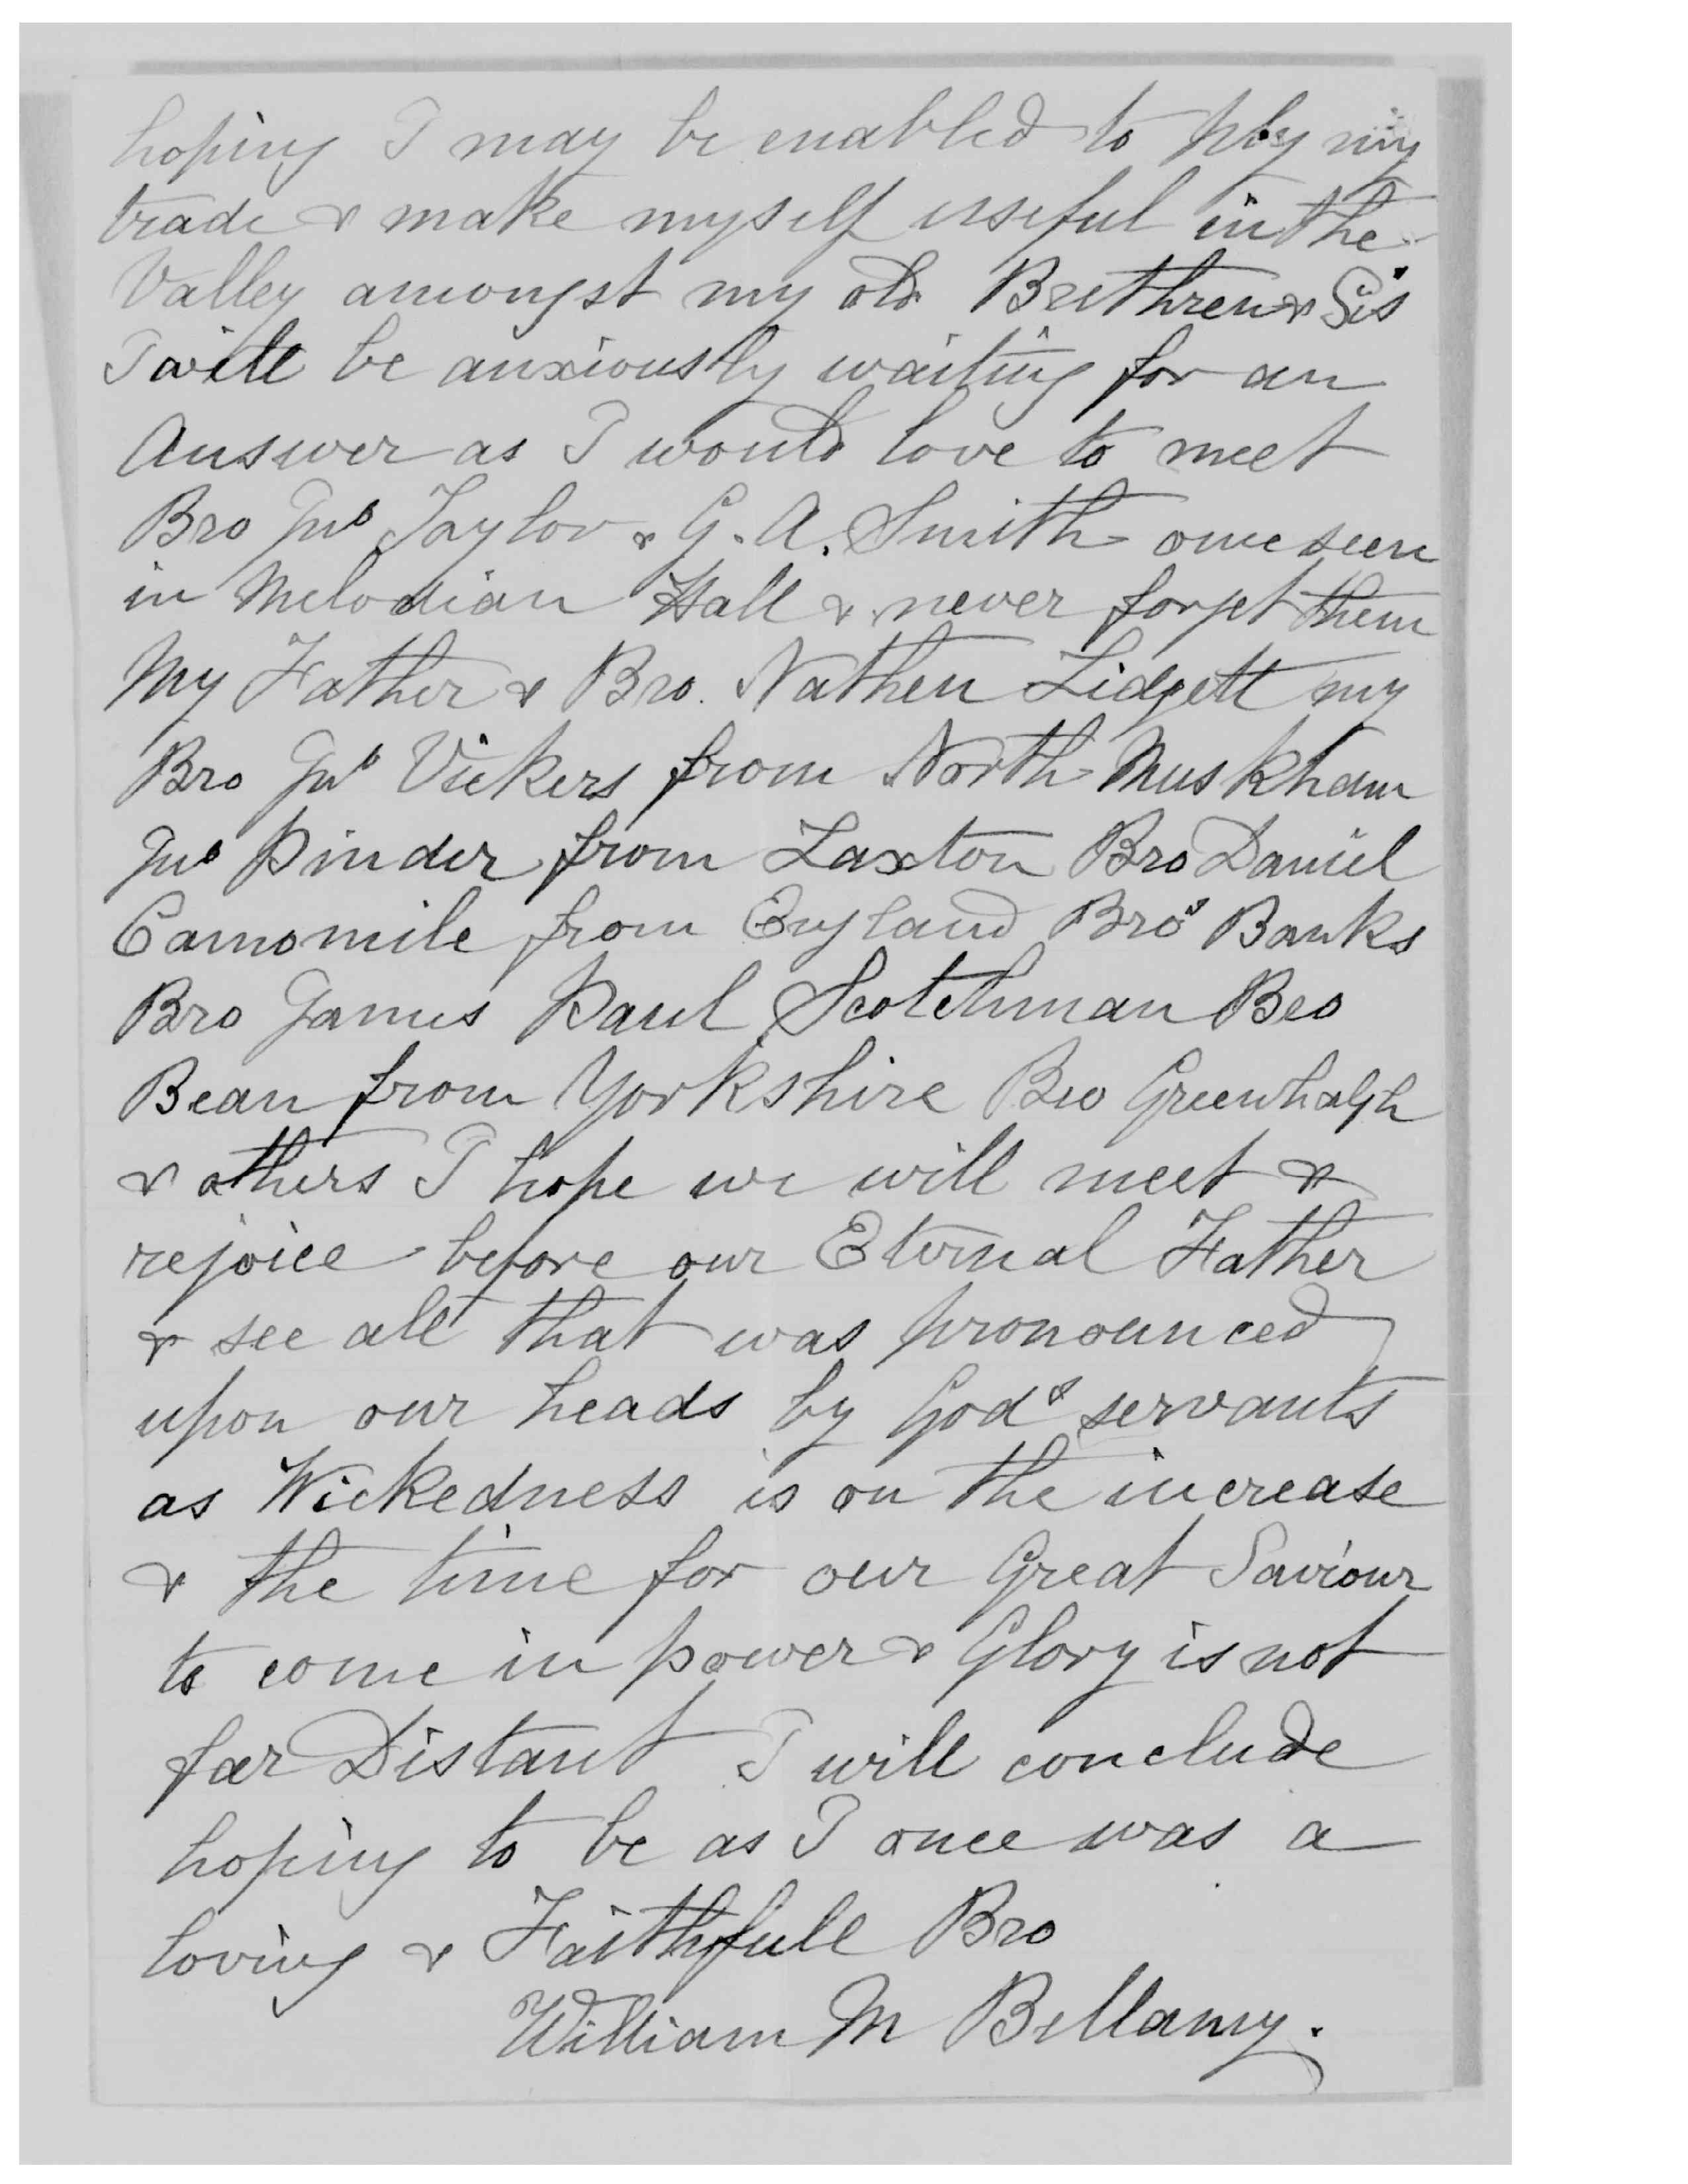 hoping I may be enabled to ply my
trade & make myself useful in the
Valley amongst my old Brethren & Sis
I will be anxiously waiting for an
Answer as I would love to meet
Bro Jno Taylor & G. A. Smith once seen
in Melodian Hall & never forget them
My Father & Bro. Nathen Lidgett my
Bro Jno Vickers from North Muskham
Jno Pinder from Laxton Bro Daniel
Camomile from England Bros Banks
Bro James Paul Scotchman Bro
Bean from Yorkshire Bro Greenhalgh
& others I hope we will meet &
rejoice before our Eternal Father
& see all that was pronounced
upon our heads by Gods servants
as Wickedness is on the increase
& the time for our Great Saviour
to come in power & Glory is not
far Distant I will conclude
hoping to be as I once was a
loving & Faithfull Bro
William M Bellamy.